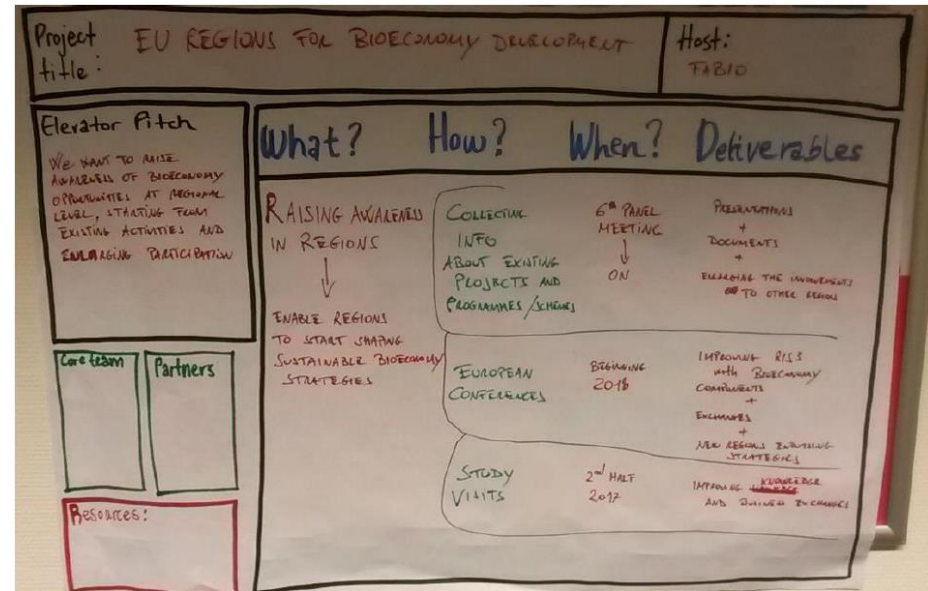 Project title:
EU REGIONS FOR BIOECONOMY DEVELOPMENT
Host:
FABIO
Elevator Pitch
WE WANT TO RAISE
AWARENESS OF BIOECONOMY
OPPORTUNITIES AT REGIONAL
LEVEL, STARTING FROM
EXISTING ACTIVITIES AND
ENLARGING PARTICIPATION
Core team
Partners
Resources:
What?
How?
When?
Deliverables
RAISING AWARENESS
IN REGIONS
ENABLE REGIONS
TO START SHAPING
SUSTAINABLE BIOECONOMY
STRATEGIES
COLLECTING
INFO
ABOUT EXISTING
PROJECTS AND
PROGRAMMES/SCHEMES
6th PANEL
MEETING
ON
PRESENTATIONS
+
DOCUMENTS
+
ENLARGING THE INVOLVEMENTS
TO OTHER REGIONS
EUROPEAN
CONFERENCES
BEGINNING
2018
IMPROVING RIS3
with BIOECONOMY
COMPONENTS
+
EXCHANGES
+
NEW REGIONS
STRATEGIES
STUDY
VISITS
2nd HALF
2017
IMPROVING KNOWLEDGE
AND EXCHANGES